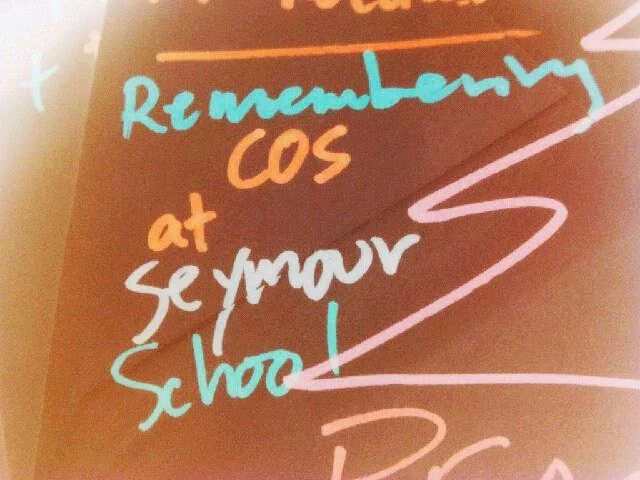 Remembering
COS
at
Seymour
School